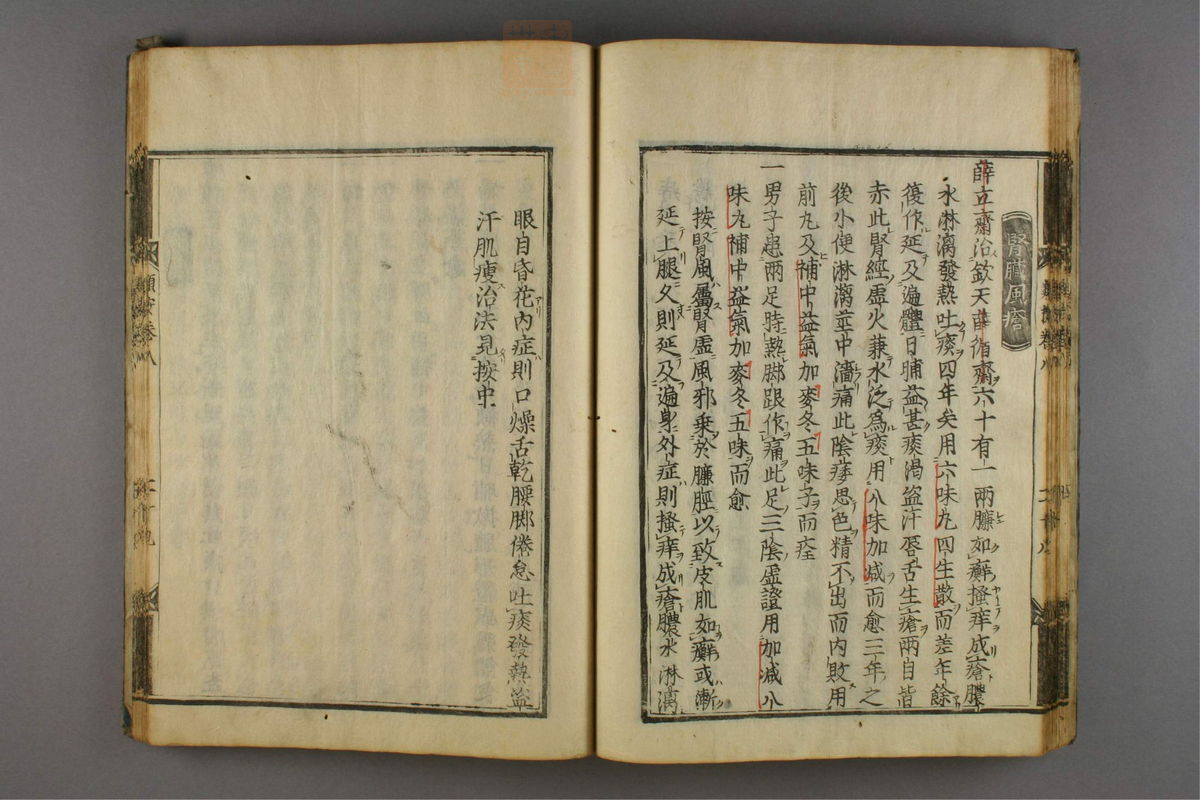 腎臓風瘡
薛立齋治欽天薛循齋六十有一兩臁如癬搔痒成瘡膿
水淋漓發熱吐痰四年矣用六味丸四生散而差年餘
復作延及遍體日晡益甚痰渴盗汗唇舌生瘡兩目皆
赤此腎經虚火兼水泛爲痰用八味加减而愈三年之
後小便淋漓莖中濇痛此陰痿思色精不出而内敗用
前丸及補中益氣加麥冬五味子而痊
一男子患兩足時熱脚跟作痛此足三陰虚證用加减八
味丸補中益氣加麥冬五味而愈
按腎風屬腎虚風邪乗於臁脛以致皮肌如癬或漸
延上腿久則延及遍身外症則搔痒成瘡膿水淋漓
眼目昏花内症則口燥舌乾腰脚倦怠吐痰發熱盗
汗肌瘦治法見按中
類案卷八